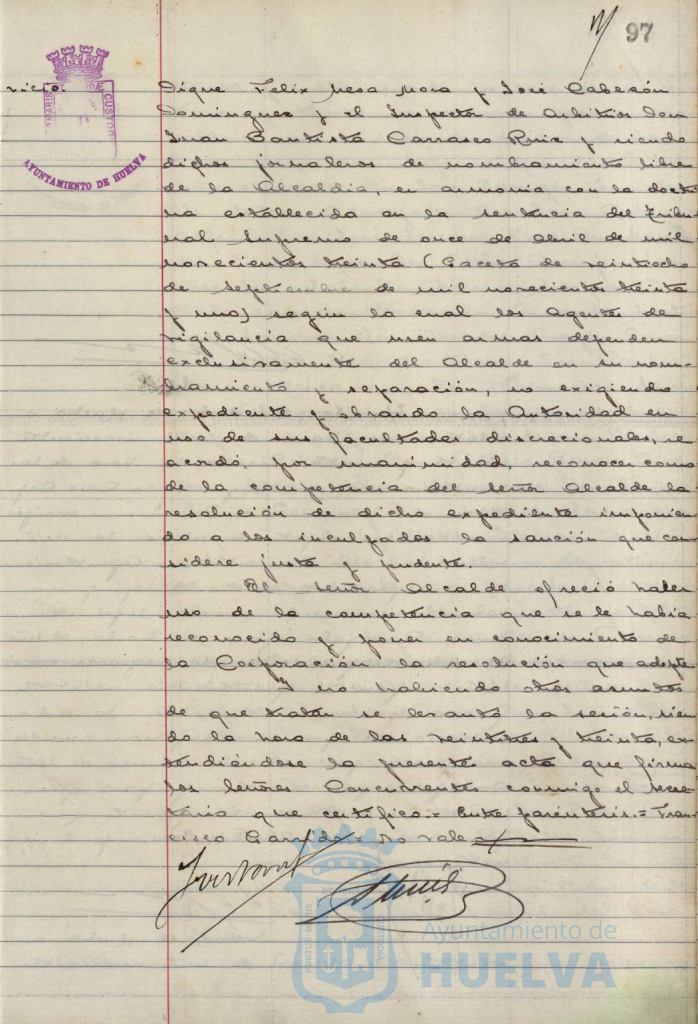 97
vicio.
PORTUS MARIS ET TERRAE CUSTODIA
AYUNTAMIENTO DE HUELVA
Dique Felix Mesa Mora y José Cabezón
Dominguez y el Inspector de Arbitrios Don
Juan Bautista Carrasco Ruiz y siendo
dichos jornaleros de nombramiento libre
de la Alcaldía, en armonia con la doctri
na establecida en la sentencia del Tribu
nal Supremo de once de Abril de mil
novecientos treinta (Gaceta de veintiocho
de Septiembre de mil novecientos treinta
y uno) según la cual los Agentes de
vigilancia que usen armas dependen
exclusivamente del Alcalde en su nom-
bramiento y separación, no exigiendo
expediente y obrando la Autoridad en
uso de sus facultades discrecionales, se
acordó, por unanimidad, reconocer como
de la competencia del señor Alcalde la
resolución de dicho expediente imponien
do a los inculpados la sanción que con
sidere justa y prudente.
El señor Alcalde ofreció hacer
uso de la competencia que se le había
reconocido y poner en conocimiento de
la Corporación la resolución que adopte
Y no habiendo otros asuntos
de que tratar se levantó la sesión, sien
do la hora de las veintitres y treinta, ex
tendiéndose la presente acta que firma
los señores Concurrentes conmigo el secre
tario que certifico.= Entre parentesis.= Fran
cisco Garrido= No vale
Ayuntamiento de
HUELVA